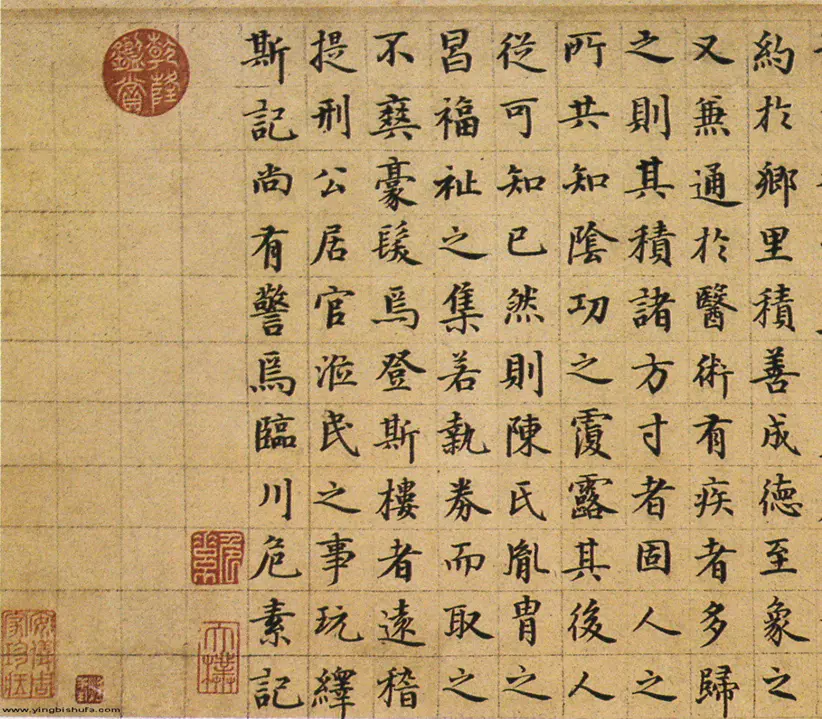 約於鄉里積善成德至象之
又兼通於醫術有疾者多歸
之則其積諸方寸者固人之
所共知陰功之覆露其後人
從可知已然則陳氏胤胄之
昌福祉之集若執券而取之
不爽豪髮焉登斯樓者遠稽
提刑公居官涖民之事玩繹
斯記尚有警焉臨川危素記
危素
太樸
乾隆鑑賞
安儀周家珍藏
www.yingbishufa.com